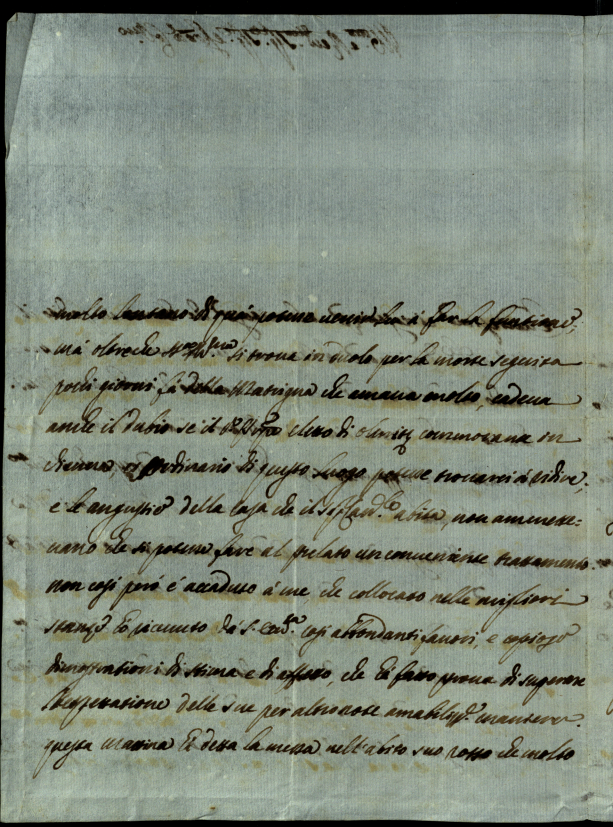 molto lontano di quà potesse venir lui à far la funtione;
mà oltreche si trova in duolo per la morte seguita
pochi giorni fà della Matrigna che amava molto, cadeva
anche il dubio se il eletto di Olmitz commorava in
diecesi, ordinario di questo luogo potesse trovarci à ridire,
e le angustie della casa che il abita, non ammette-
vano che si potesse fare al prelato un conveniente trattamento.
non così però è accaduto à me, che collocato nelle migliori
stanze hò ricevuto da S. così abbondanti favori, e copiose
dimostrationi di stima e di affetto, che hò fatto prova di superare
l'aspettatione delle sue per altro note amabiliss.e maniere.
questa mattina hò detta la messa nell'abito suo rosso che molto